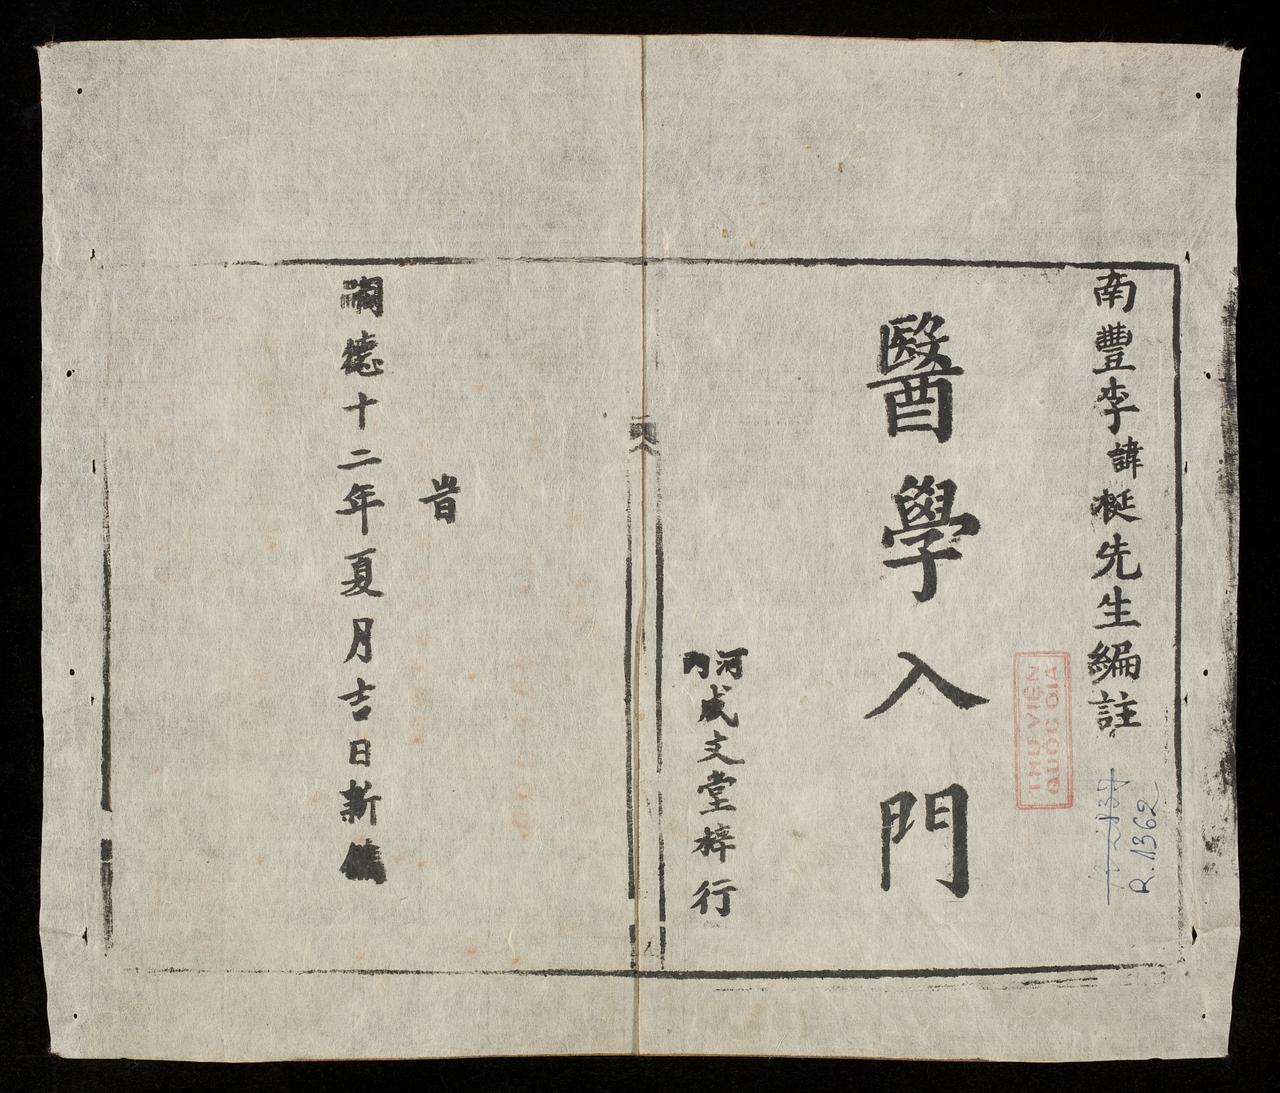 南豐李諱梴先生編註
醫學入門
河內
盛文堂梓行
旹
嗣德十二年夏月吉日新鐫
THƯ VIỆN
QUỐC GIA
R.1362